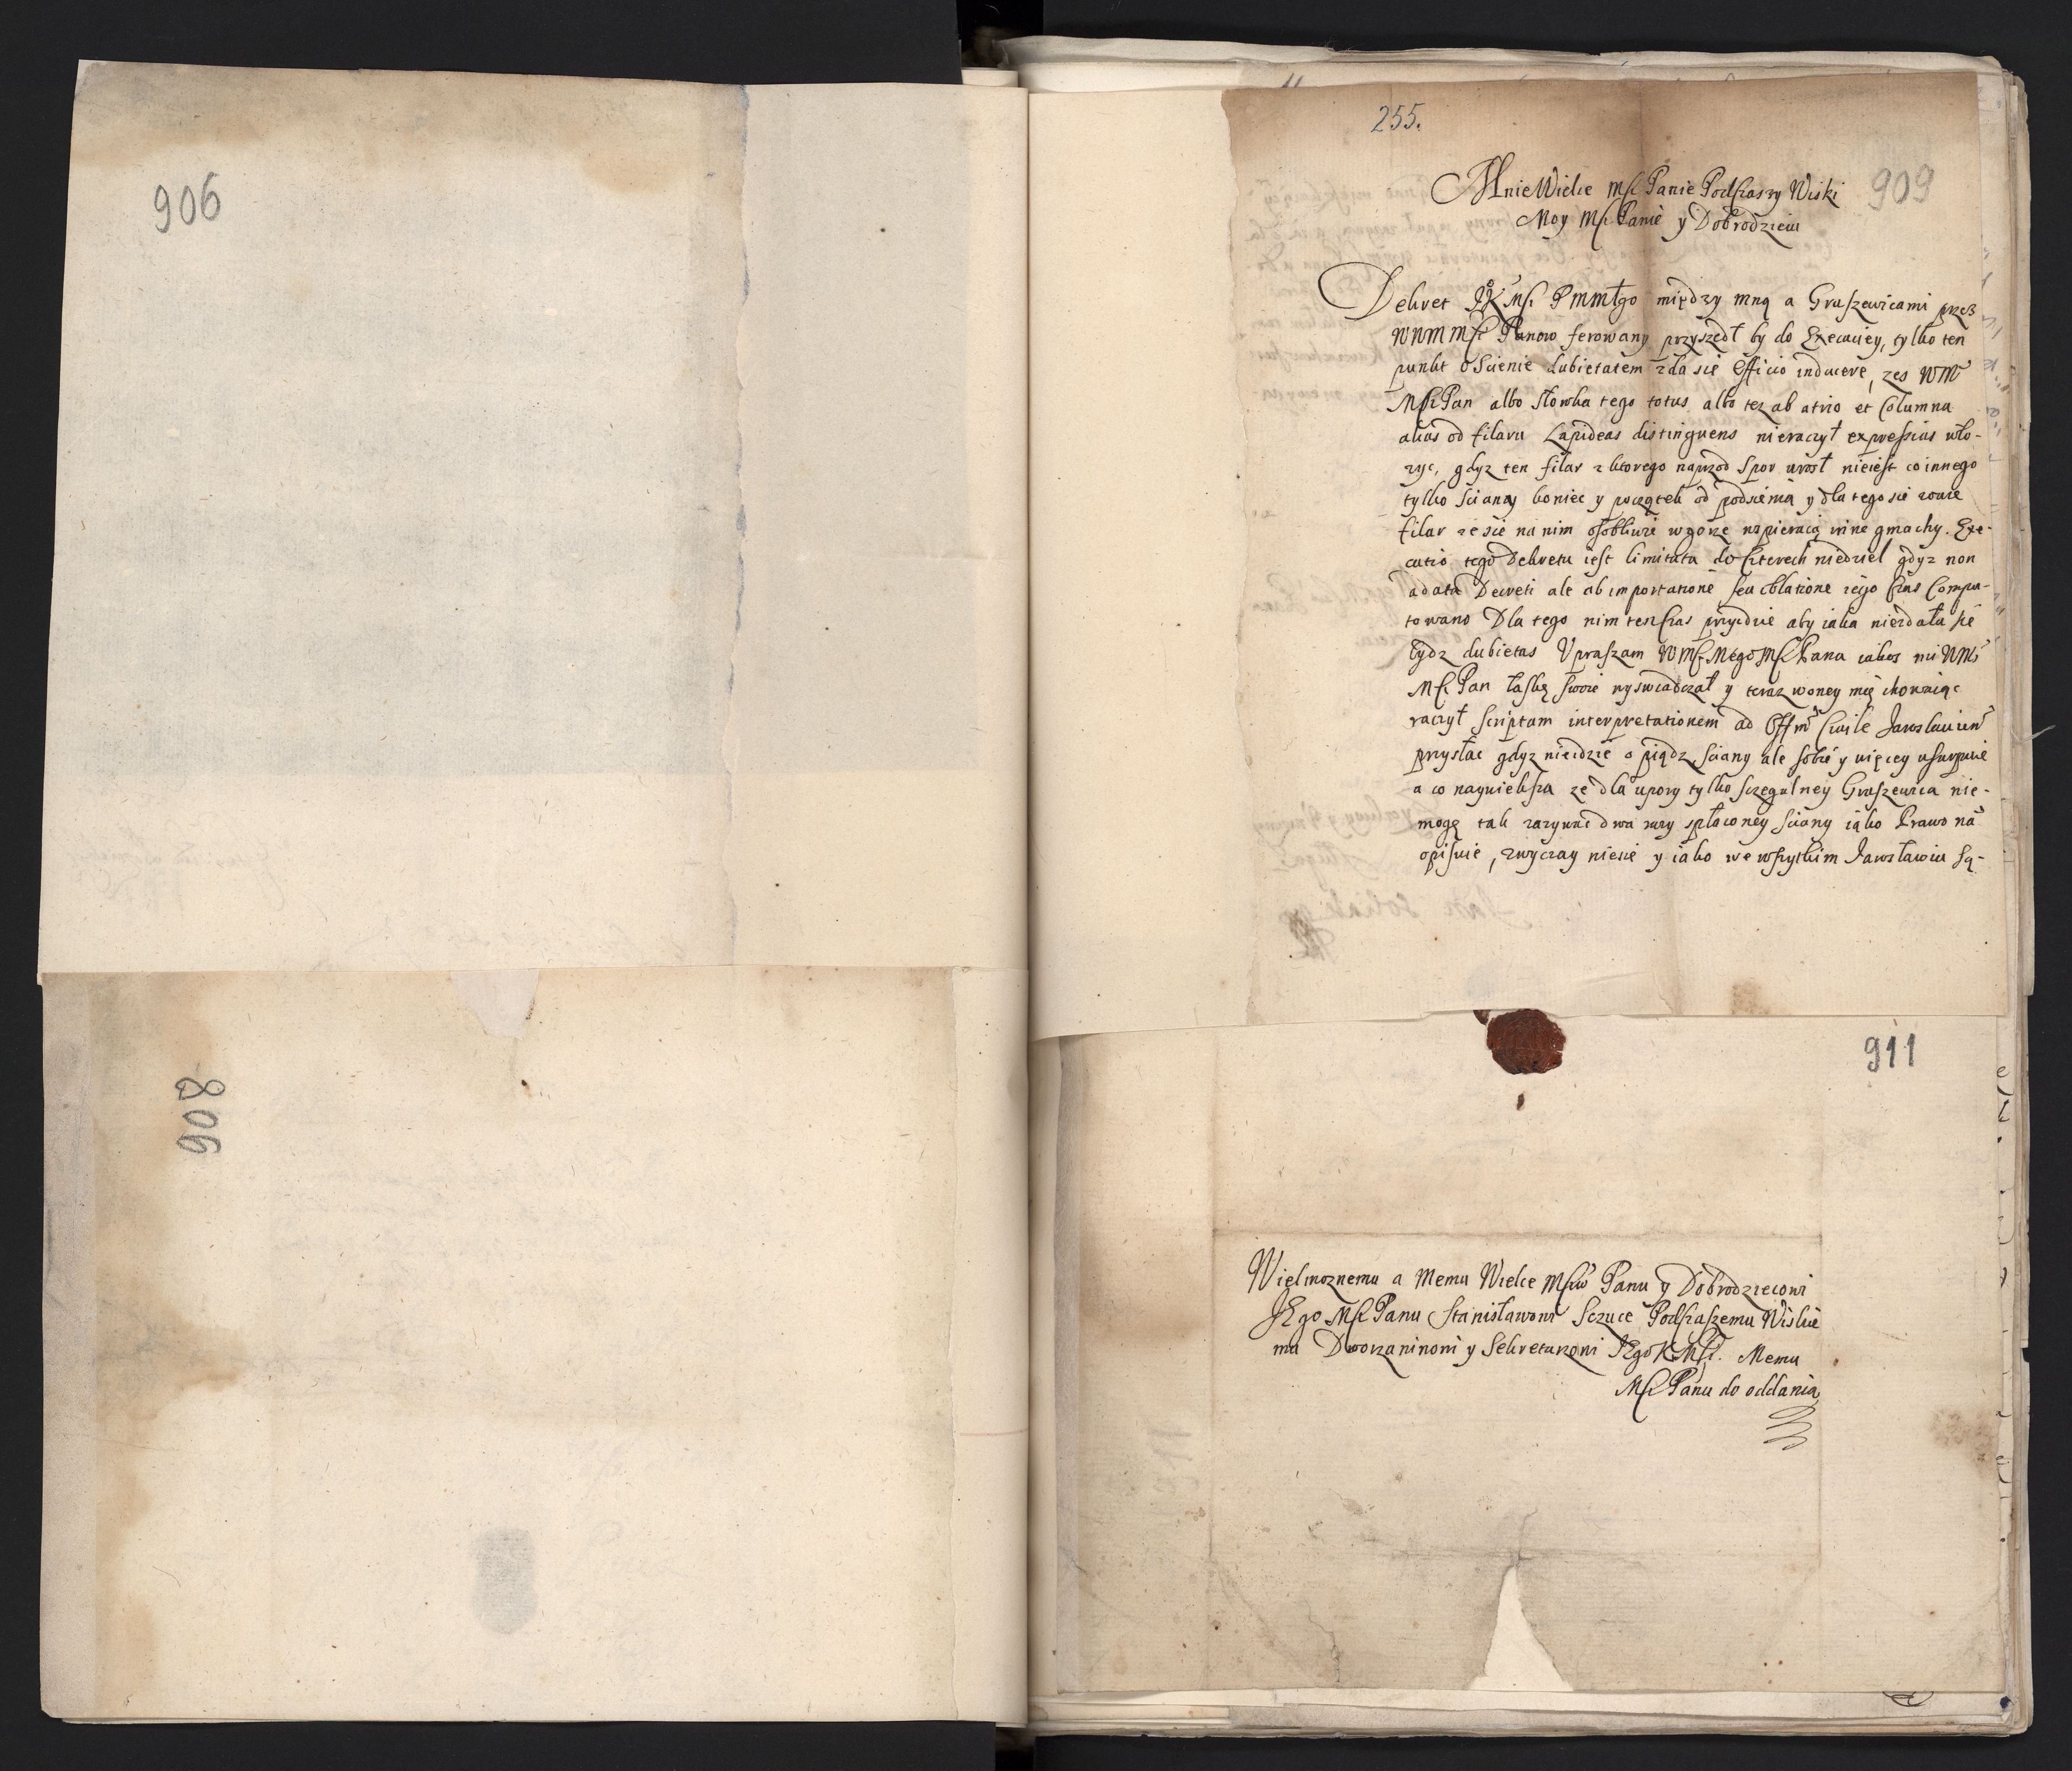 906
908
255.
909
Mnie Wielce Mſc Panie Podſtaszy Wiski
Moy Mſc Panie y Dobrodzieiu
Dekret JKMſc Pmmłgo między mną a Gruſzewicami przez
WMM Mſc Panow ferowany przyszedł by do Execuciey, tylko ten
punkt o Scienie dubietatem zda się Officio inducere, zes WM
Mſc Pan albo słowka tego totus albo tez ab atrio et Columna
alias od filaru Lapideas distinguens nieraczył expreſsius wło-
zyc, gdyz ten filar z ktorego naprzod spor urosł nieiest co innego
tylko sciany koniec y początek od podsienia y dla tego sie zowie
filar ze sie na nim osobliwie wgorze wspieraią inne gmachy. Exe-
cutio tego Dekretu iest limitata do czterech niedziel gdyz non
a data Decreti ale ab importatione seu oblatione iego czas Compu-
towano Dla tego nim ten czas przydzie aby iaka niezdała sie
bydz dubietas Upraszam WMſc Mego Mſc Pana iakos mi WMſ
Mſc Pan łaskę swoie wyswiadczał y teraz w oney mię chowaiąc
raczył scriptam interpretationem ad Offm Ciuile Jaroslauien
przysłac gdyz nieidzie o piądz sciany ale sobie y więcey usurpuie
a co naywieksza ze dla upory tylko sczegulney Gruszewica nie-
mogę tak zazywac dwa razy spłaconey sciany iako Prawo na
opisuie, zwyczay niesie y iako we wszystkim Jarosławiu są-
911
Wielmoznemu a Memu Wielce Mſcw Panu y Dobrodzieiowi
JEgo Mſc Panu Stanisławowi Sczuce Podſtaszemu Wiskie
mu Dworzaninowi y Sekretarzowi JEgo K Mſci. Memu
Mſc Panu do oddania